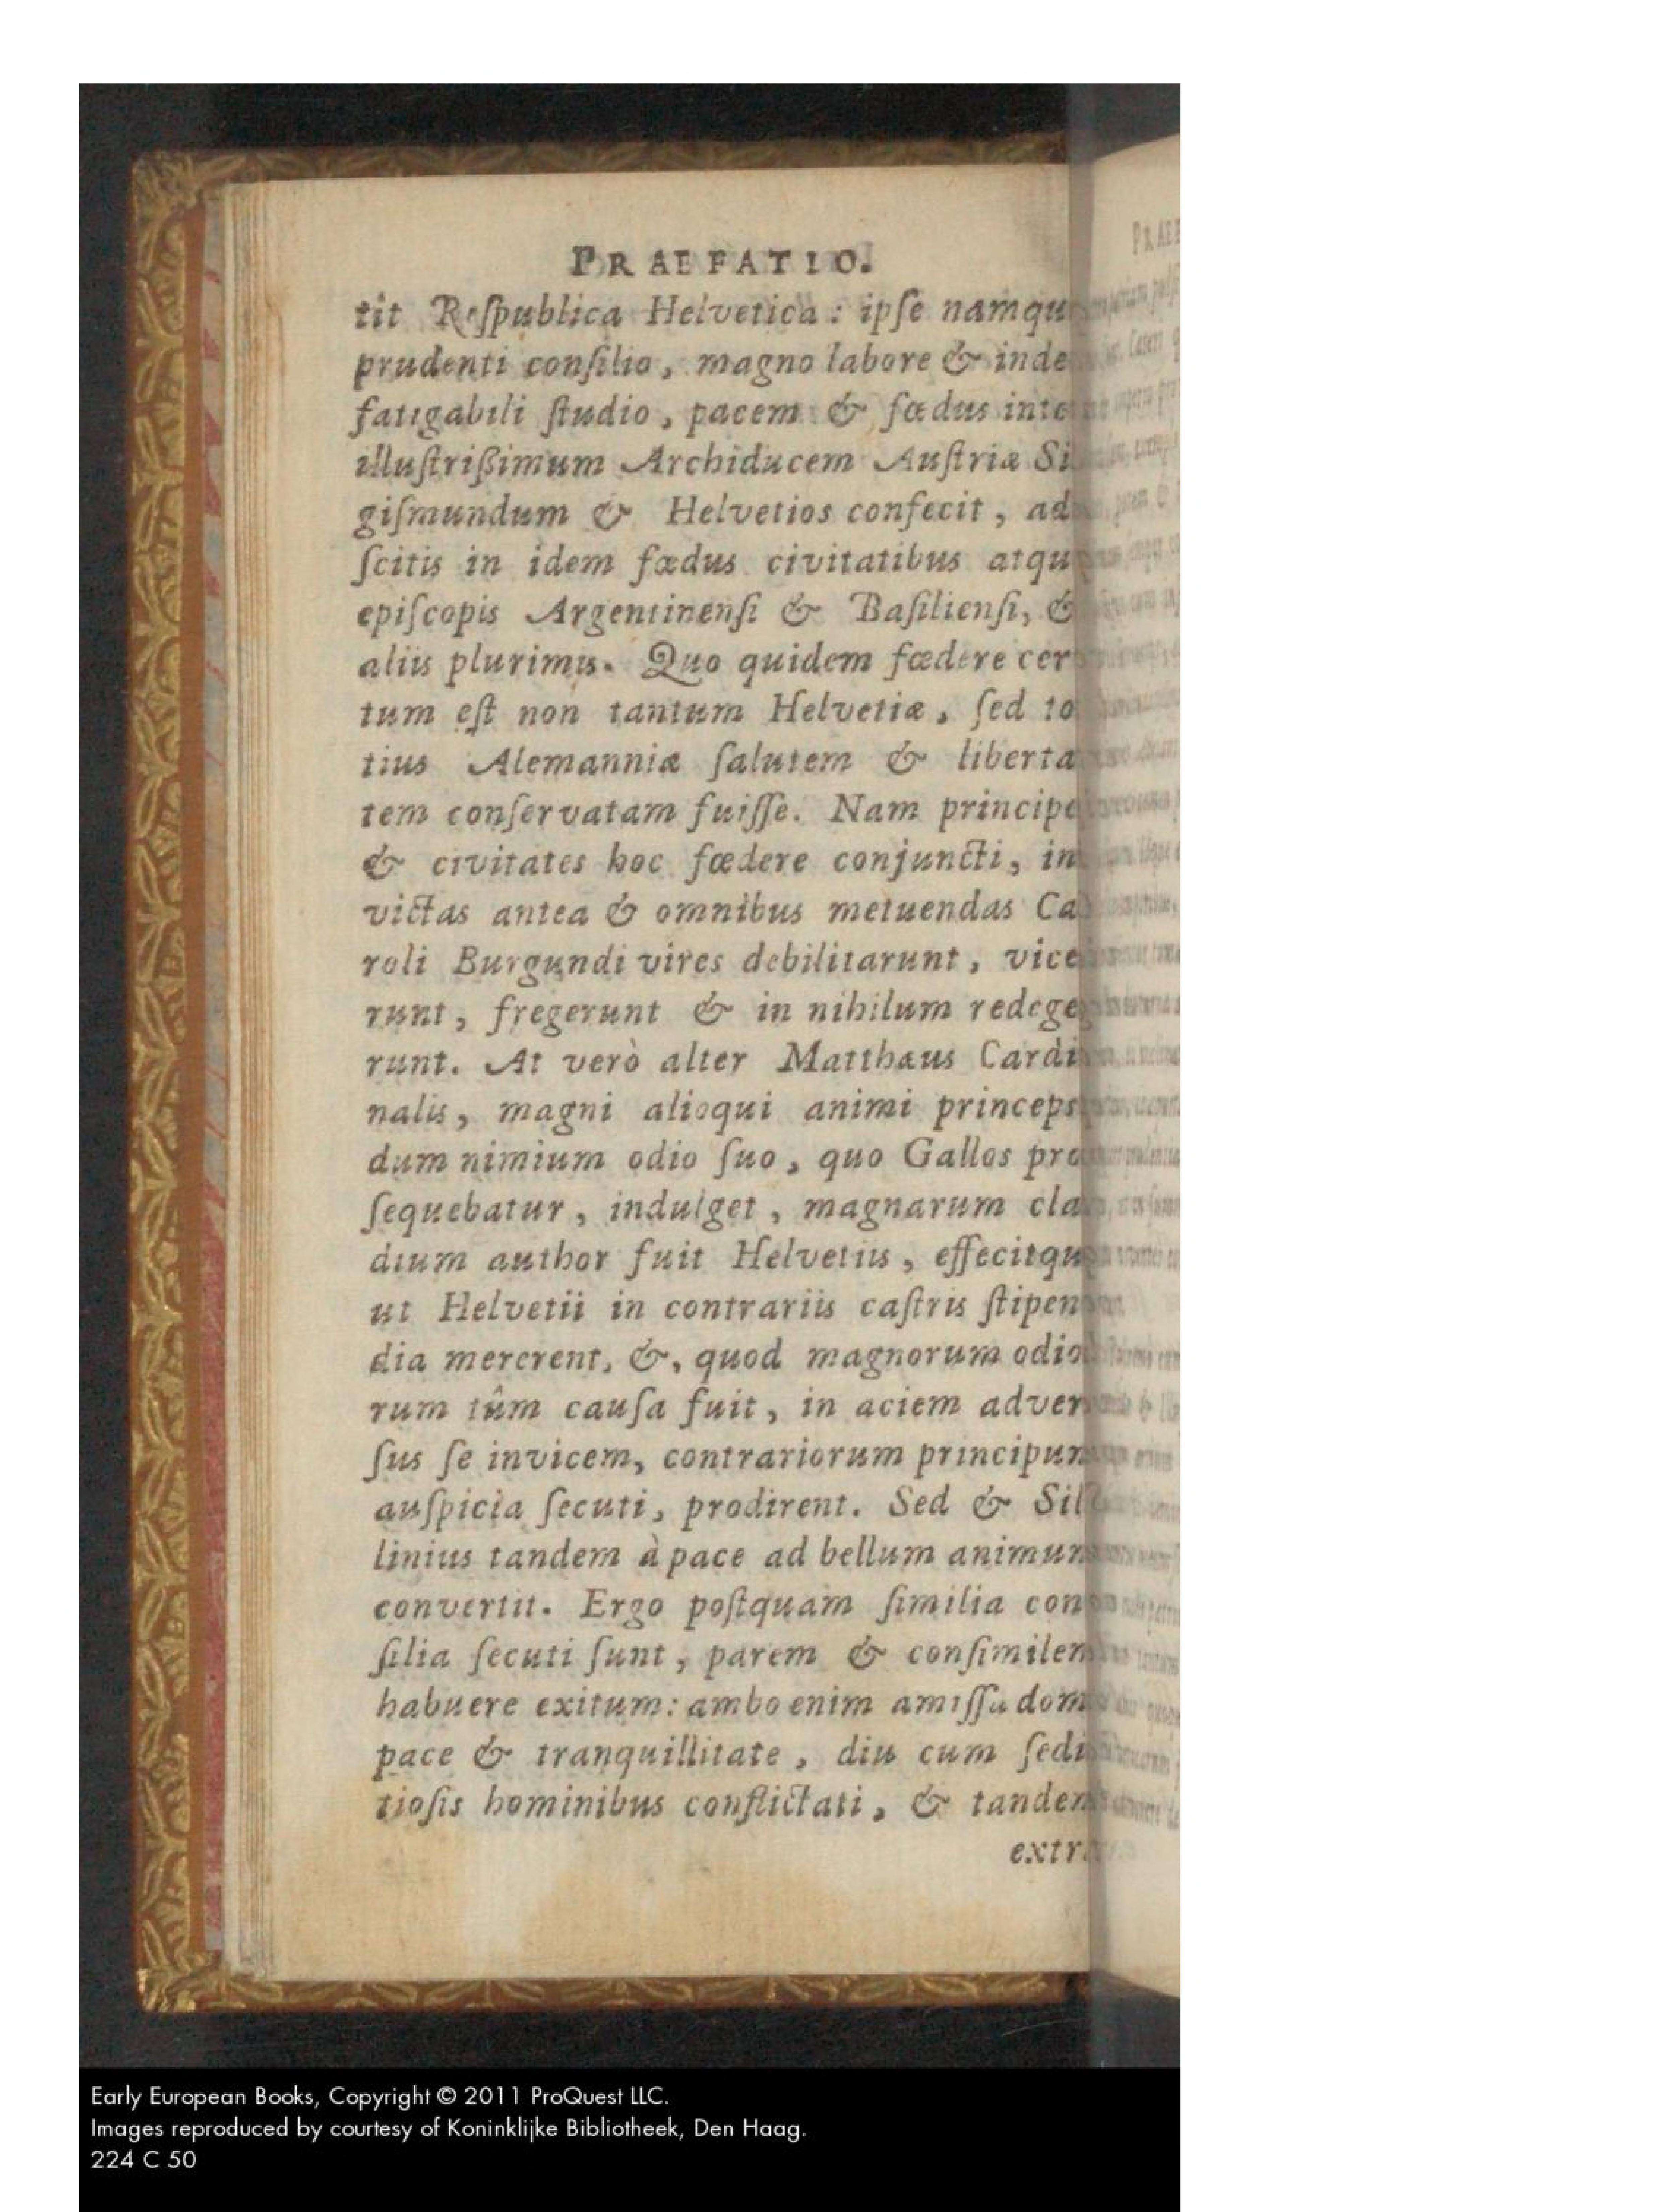 PRAEFATIO.
tit Reſpublica Helvetica: ipſe namqu
prudenti conſilio, magno labore & inde
fatigabili ſtudio, pacem & fœdus inte
illuſtriſſimum Archiducem Auſtriæ Si
giſmundum & Helvetios confecit, ad
ſcitis in idem fœdus civitatibus atqu
epiſcopis Argentinenſi & Baſilienſi, &
aliis plurimis. Quo quidem fœdere cer
tum eſt non tantum Helvetiæ, ſed to
tius Alemanniæ ſalutem & liberta
tem conſervatam fuiſſe. Nam principe
& civitates hoc fœdere conjuncti, in
victas antea & omnibus metuendas Ca
roli Burgundi vires debilitarunt, vice
runt, fregerunt & in nihilum redege
runt. At verò alter Matthæus Cardi
nalis, magni alioqui animi princeps
dum nimium odio ſuo, quo Gallos pro
ſequebatur, indulget, magnarum cla
dium author fuit Helvetiis, effecitqu
ut Helvetii in contrariis caſtris ſtipen
dia mererent, &, quod magnorum odio
rum tûm cauſa fuit, in aciem adver
ſus ſe invicem, contrariorum principum
auſpicia ſecuti, prodirent. Sed & Sil
linius tandem à pace ad bellum animum
convertit. Ergo poſtquam ſimilia con
ſilia ſecuti ſunt, parem & conſimilem
habuere exitum: ambo enim amiſſa dom
pace & tranquillitate, diu cum ſedi
tioſis hominibus conflictati, & tandem
extr
Early European Books, Copyright © 2011 ProQuest LLC.
Images reproduced by courtesy of Koninklijke Bibliotheek, Den Haag.
224 C 50